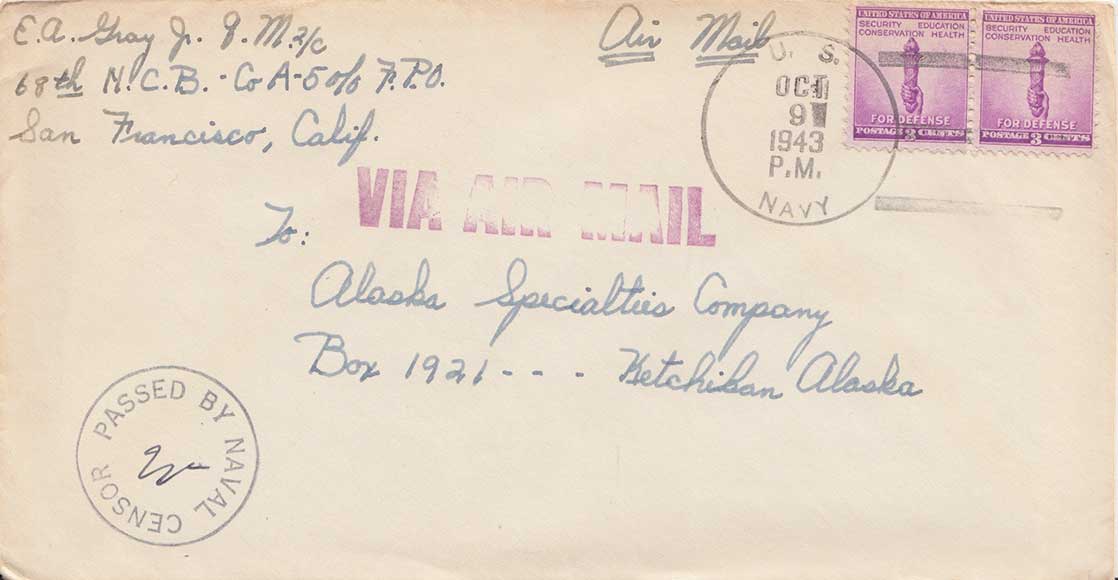 E.A. Gray Jr. G.M. 2/c
68th N.C.B. - Co A-5 o/o F.P.O.
San Francisco, Calif.
Air Mail
U. S.
OCT
9
1943
P.M.
NAVY
UNITED STATES OF AMERICA
SECURITY EDUCATION
CONSERVATION HEALTH
FOR DEFENSE
POSTAGE 3 CENTS
UNITED STATES OF AMERICA
SECURITY EDUCATION
CONSERVATION HEALTH
FOR DEFENSE
POSTAGE 3 CENTS
VIA AIR MAIL
To:
Alaska Specialties Company
Box 1921 - - - Ketchikan Alaska
PASSED BY NAVAL CENSOR